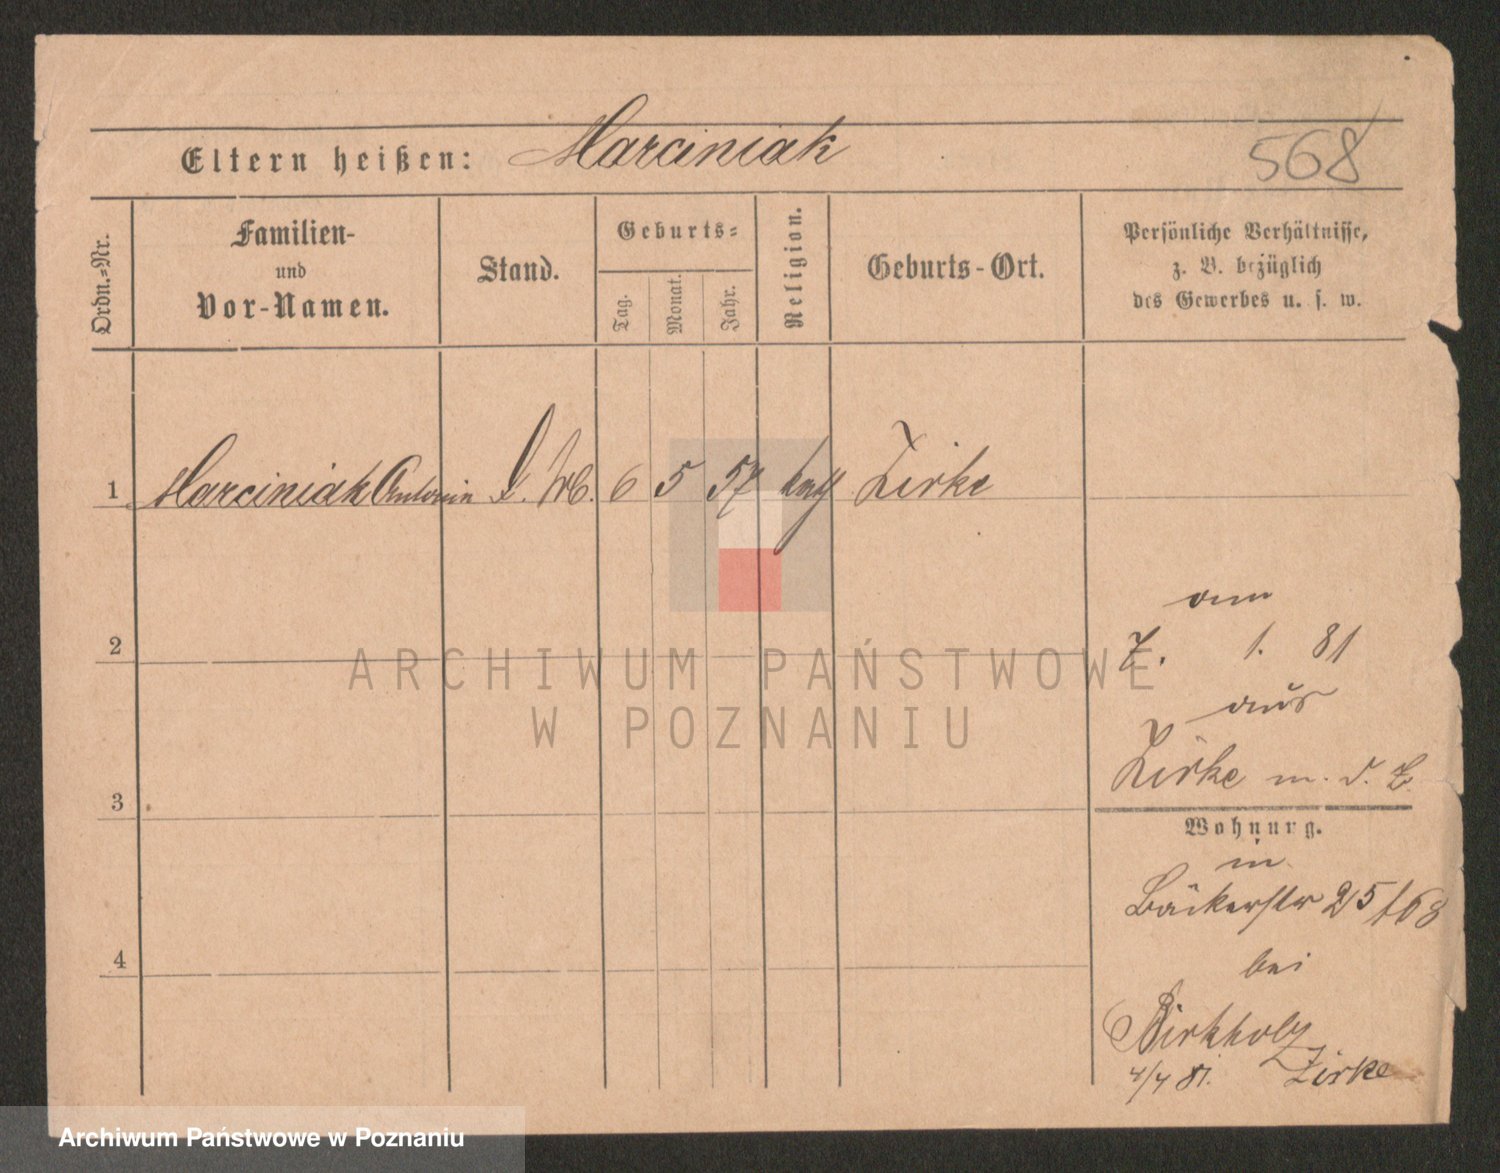 Eltern heißen: Marciniak
568
Ordn.=Nr.
Familien-
und
Vor-Namen.
Stand.
Geburts=
Tag.
Monat.
Jahr.
Religion.
Geburts-Ort.
Persönliche Verhältnisse,
z. B. bezüglich
des Gewerbes u. s. w.
1 Marciniak Antonin 6 5 57 kath Zirke
am
7. 1. 81
aus
2
ARCHIWUM PAŃSTWOWE
W POZNANIU
Zirke m. d. Z.
3
Wohnung.
in
Bäckerstr 25/168
4
bei
Birkholz
4/4 81. Zirke
Archiwum Państwowe w Poznaniu